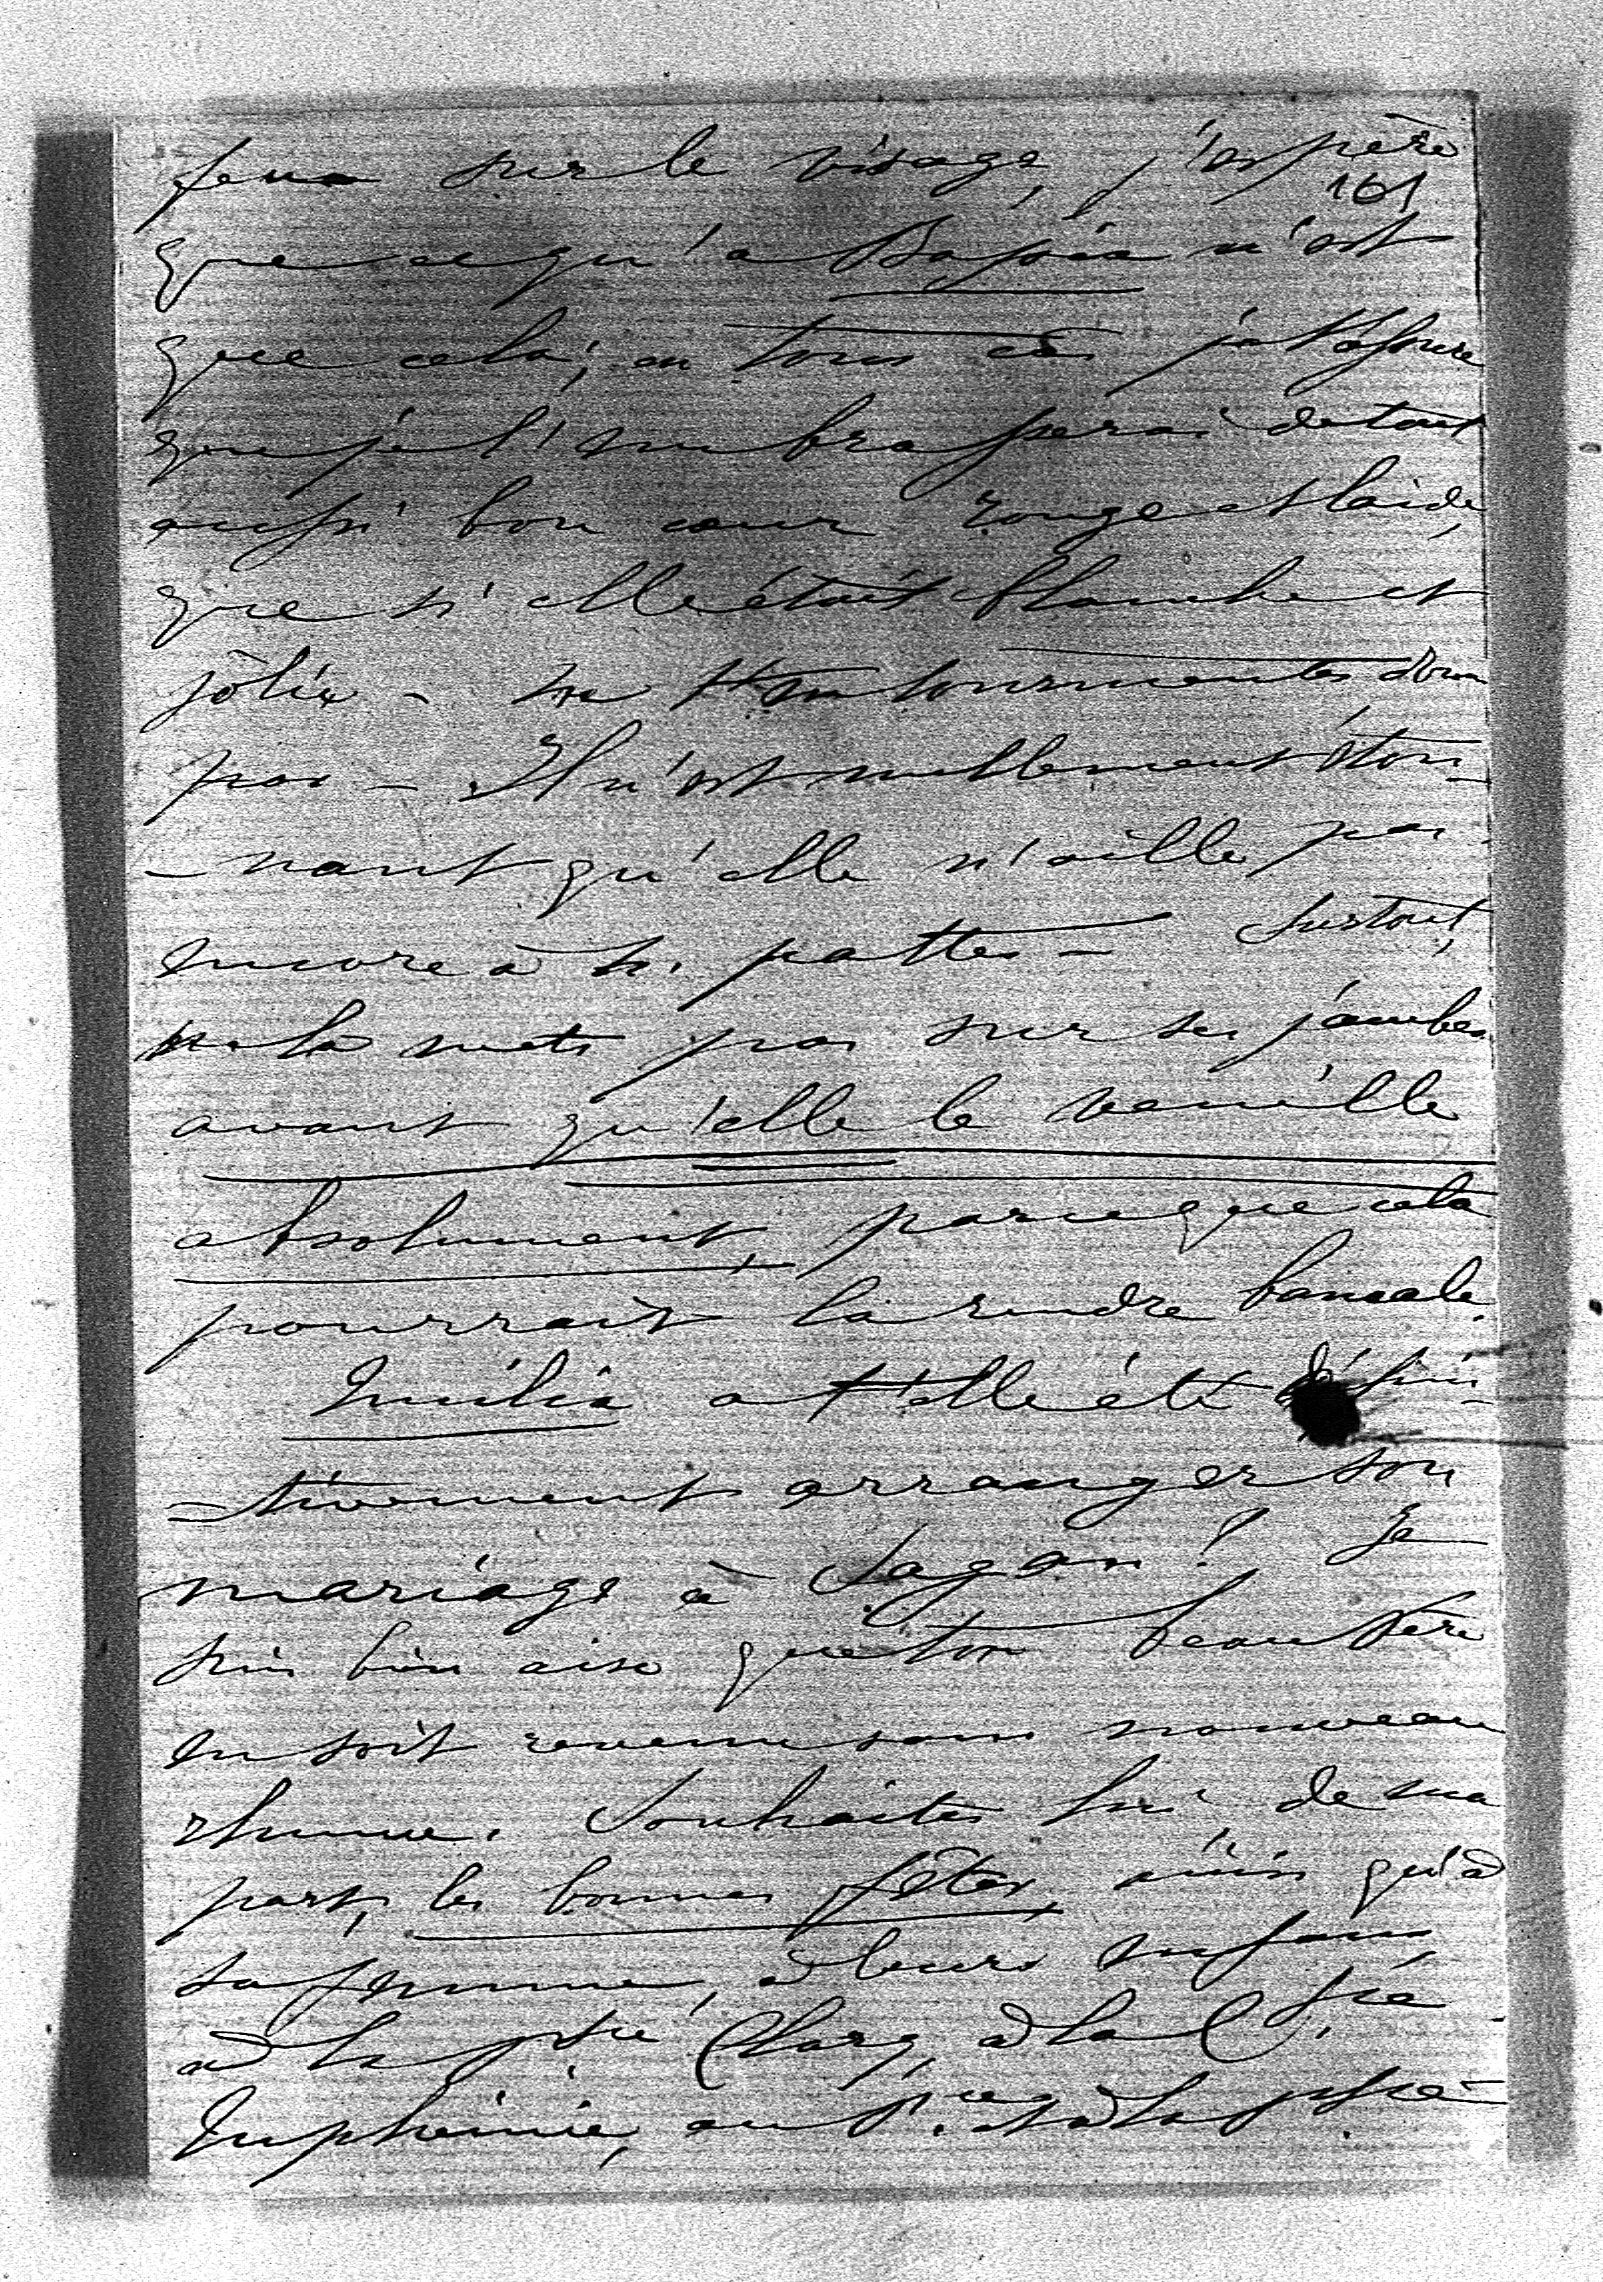 feux sur le visage, j'espère
161
que ce qu'a Sophie n'est
que cela; en tous cas je t'assure
que je l'embrasserai de tout
aussi bon cœur rouge et laide,
que si elle était blanche et
jolie – ne t'en tourmentes donc
pas – Il n'est nullement éton-
-nant qu'elle n'aille pas
encore à 4. pattes – Surtout,
ne la mets pas sur ses jambes
avant qu'elle le veuille
absolument, parceque cela
pourrait la rendre bancale.
Emilie a t'elle été défini-
-tivement arranger son
mariage à Sagan? Je
suis bien aise que ton beau Père
en soit revenu sans nouveau
rhume. Souhaites lui, de ma
part, les bonnes fêtes, ainsi qu'à
sa femme, à leurs enfans,
à la psse Charg, à la Csse
Euphémie, au Pce et à la psse